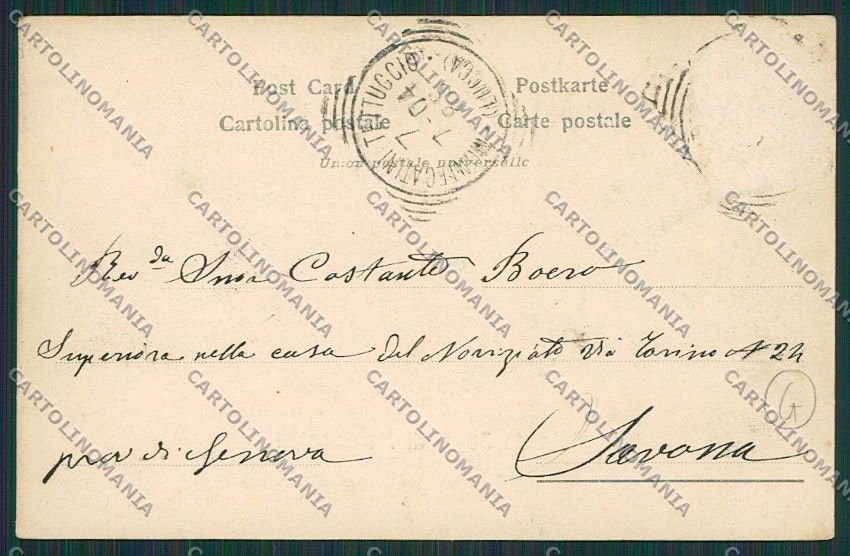 Post Card Postkarte
Cartolina postale Carte postale
Union postale universelle
MONTECATINI TETTUCCIO (LUCCA)
7-04
Rev.da Suor Costante Boero
Superiora nella casa del Noviziato Via Torino N 24
prov di Genova Savona
G
CARTOLINOMANIA